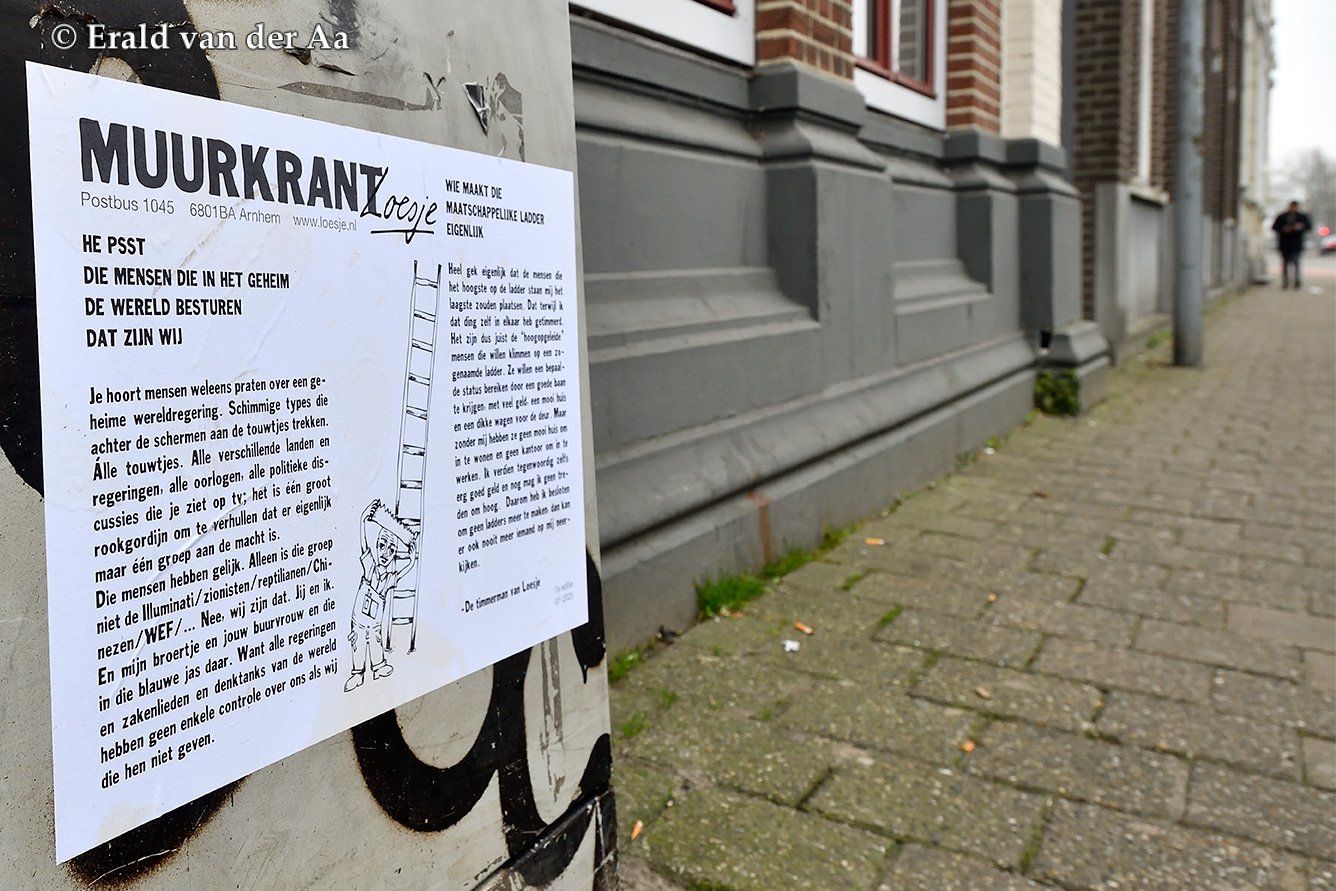 © Erald van der Aa
MUURKRANT
Loesje
Postbus 1045 6801BA Arnhem www.loesje.nl
HE PSST
DIE MENSEN DIE IN HET GEHEIM
DE WERELD BESTUREN
DAT ZIJN WIJ
Je hoort mensen weleens praten over een ge-
heime wereldregering. Schimmige types die
achter de schermen aan de touwtjes trekken.
Álle touwtjes. Alle verschillende landen en
regeringen, alle oorlogen, alle politieke dis-
cussies die je ziet op tv; het is één groot
rookgordijn om te verhullen dat er eigenlijk
maar één groep aan de macht is.
Die mensen hebben gelijk. Alleen is die groep
niet de Illuminati/zionisten/reptilianen/Chi-
nezen/WEF/... Nee, wij zijn dat. Jij en ik.
En mijn broertje en jouw buurvrouw en die
in die blauwe jas daar. Want alle regeringen
en zakenlieden en denktanks van de wereld
hebben geen enkele controle over ons als wij
die hen niet geven.
WIE MAAKT DIE
MAATSCHAPPELIJKE LADDER
EIGENLIJK
Heel gek eigenlijk dat de mensen die
het hoogste op de ladder staan mij het
laagste zouden plaatsen. Dat terwijl ik
dat ding zelf in elkaar heb getimmerd.
Het zijn dus juist de “hoogopgeleide”
mensen die willen klimmen op een zo-
genaamde ladder. Ze willen een bepaal-
de status bereiken door een goede baan
te krijgen, met veel geld, een mooi huis
en een dikke wagen voor de deur. Maar
zonder mij hebben ze geen mooi huis om
in te wonen en geen kantoor om in te
werken. Ik verdien tegenwoordig zelfs
erg goed geld en nog mag ik geen tre-
den om hoog. Daarom heb ik besloten
om geen ladders meer te maken, dan kan
er ook nooit meer iemand op mij neer-
kijken.
-De timmerman van Loesje
1e editie
01-2025